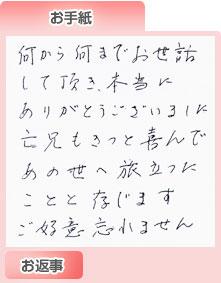 お手紙
何から何までお世話
して頂き、本当に
ありがとうございました
亡兄もきっと喜んで
あの世へ旅立つた
ことと存じます
ご好意忘れません
お返事